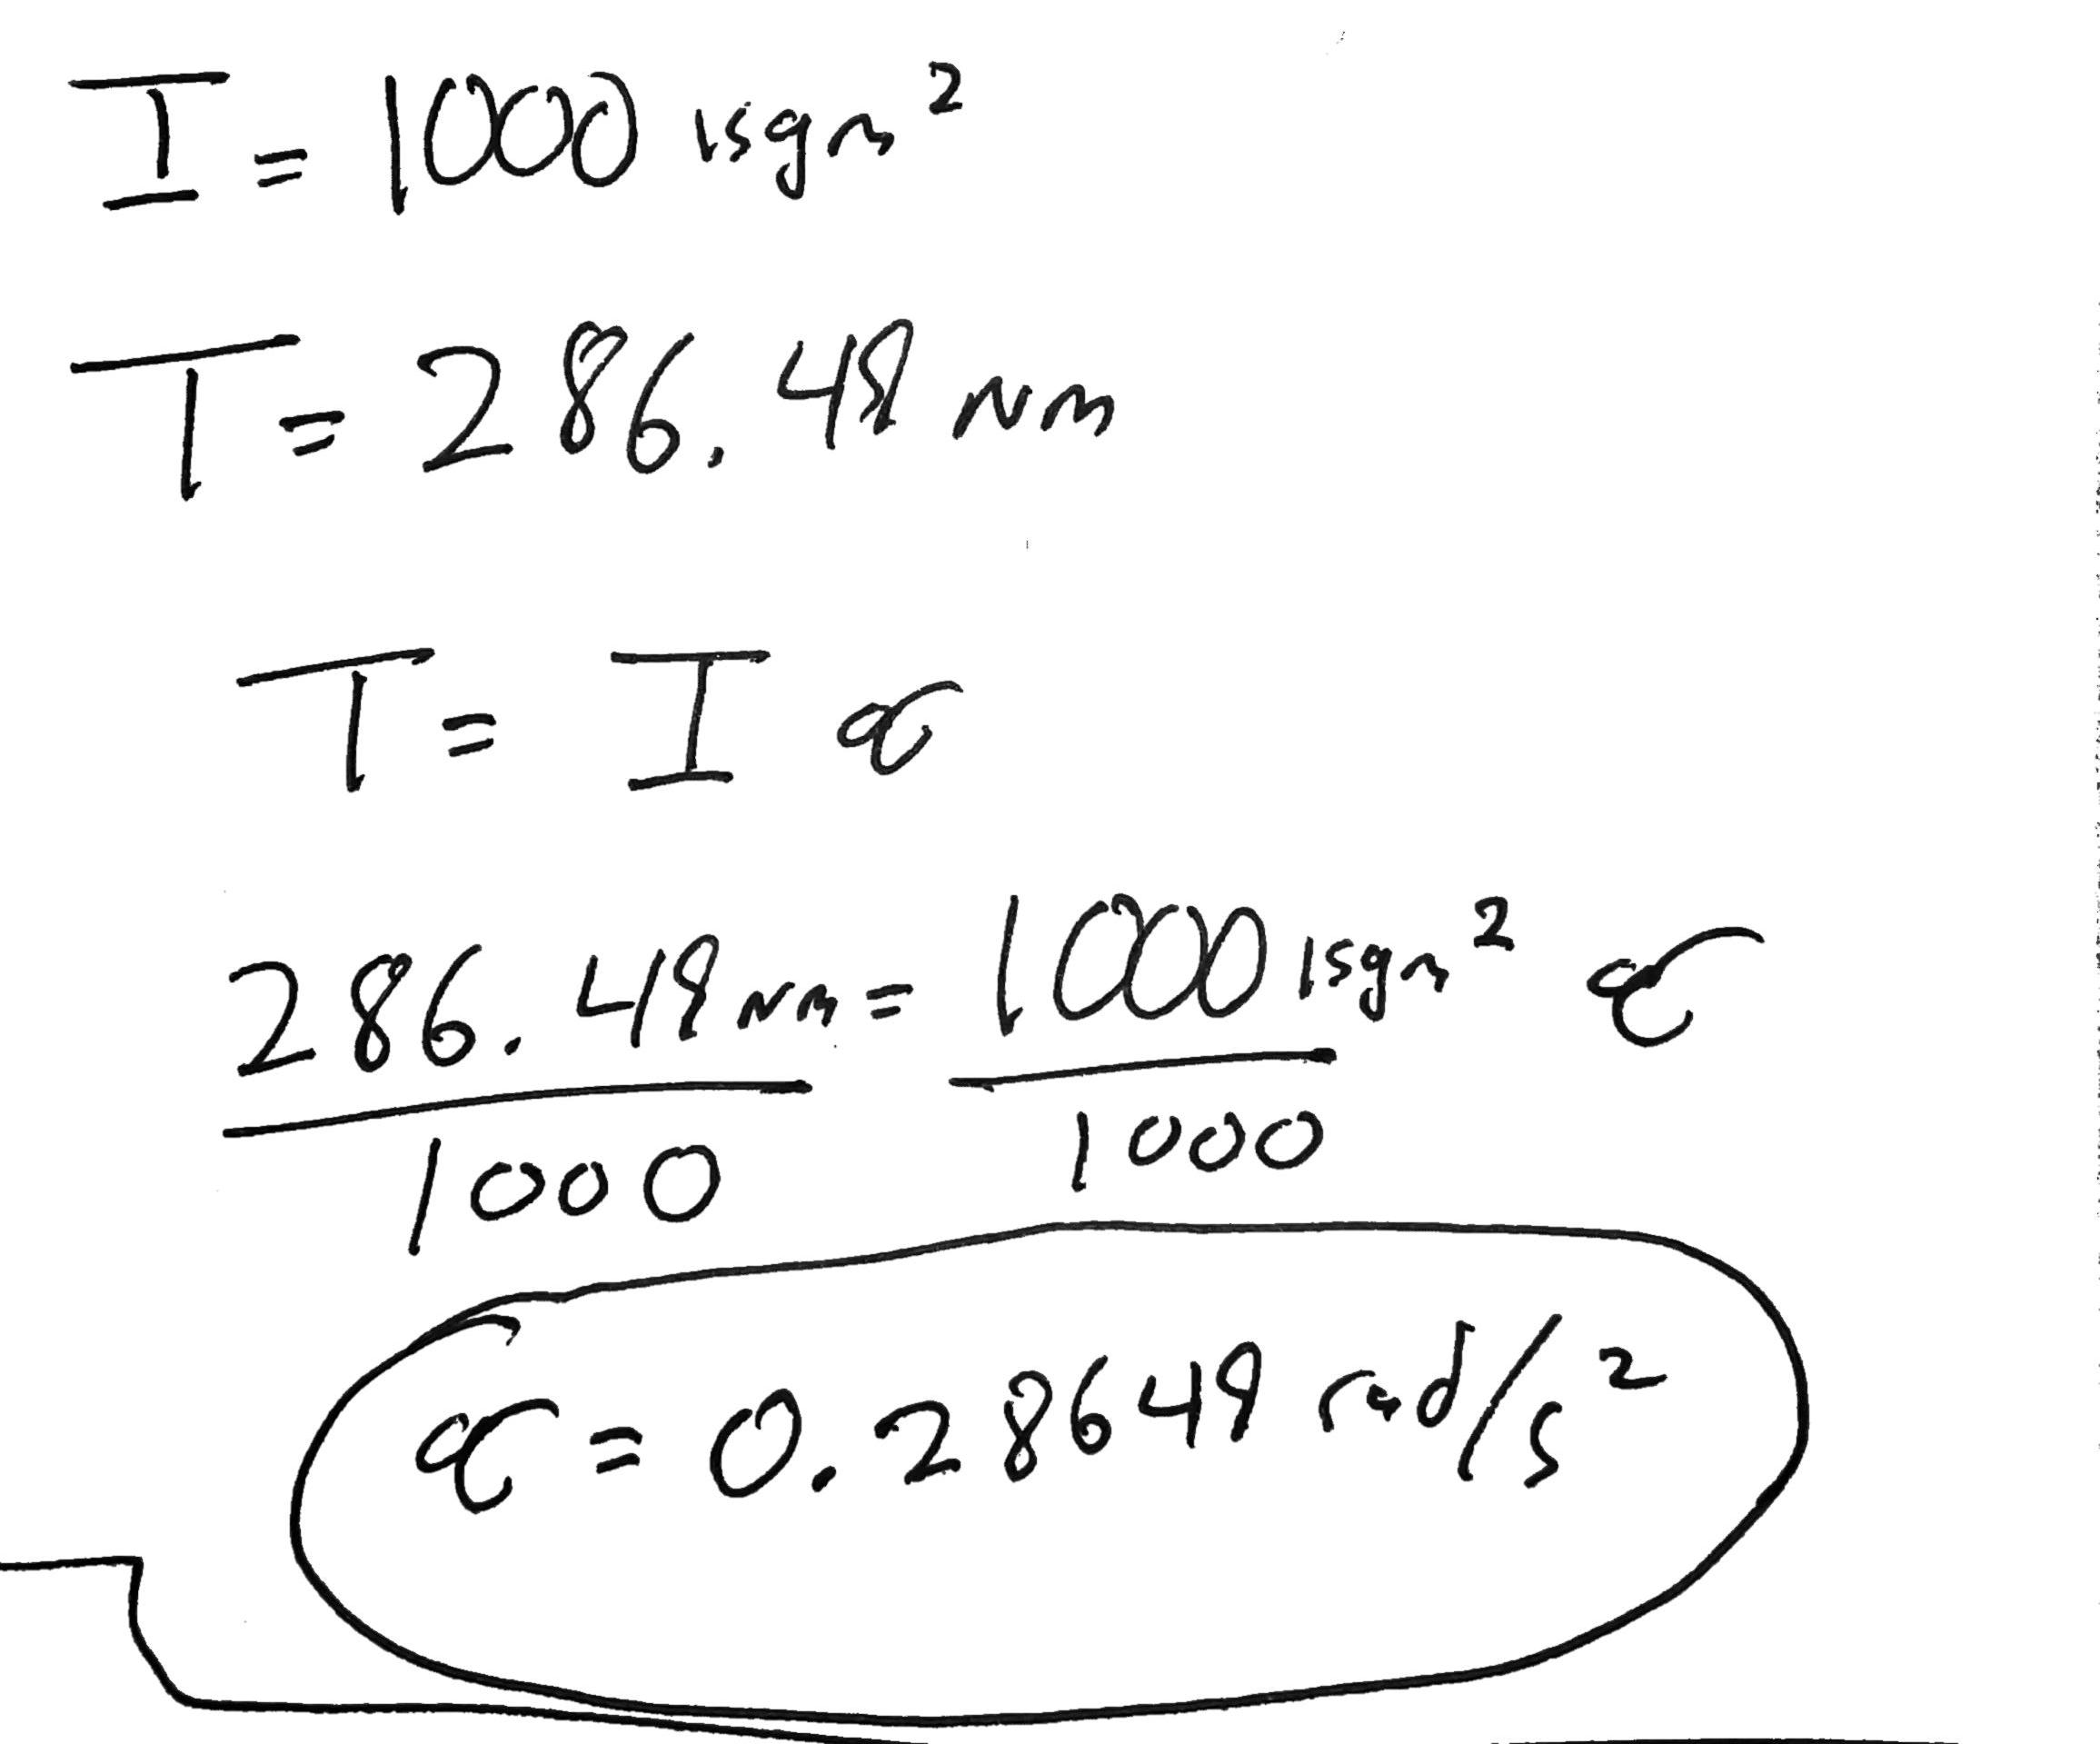 I = 1000 kgm²
T = 286.49 Nm
T = I α
286.49 Nm = 1000 kgm² α
1000 1000
α = 0.28649 rad/s²